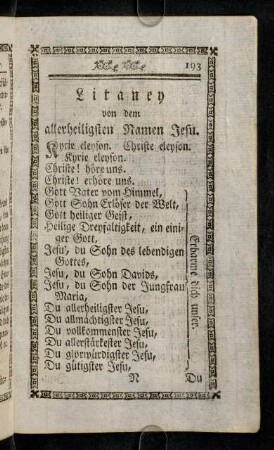 193
Litaney
von dem
allerheiligsten Namen Jesu.
Kyrie eleyson. Christe eleyson.
Kyrie eleyson.
Christe! höre uns.
Christe! erhöre uns.
Gott Vater vom Himmel,
Gott Sohn Erlöser der Welt,
Gott heiliger Geist,
Heilige Dreyfaltigkeit, ein eini-
ger Gott,
Jesu, du Sohn des lebendigen
Gottes,
Jesu, du Sohn Davids,
Jesu, du Sohn der Jungfrau
Maria,
Du allerheiligster Jesu,
Du allmächtigster Jesu,
Du vollkommenster Jesu,
Du allerstärkester Jesu,
Du glorwürdigster Jesu,
Du gütigster Jesu,
Erbarme dich unser.
N Du